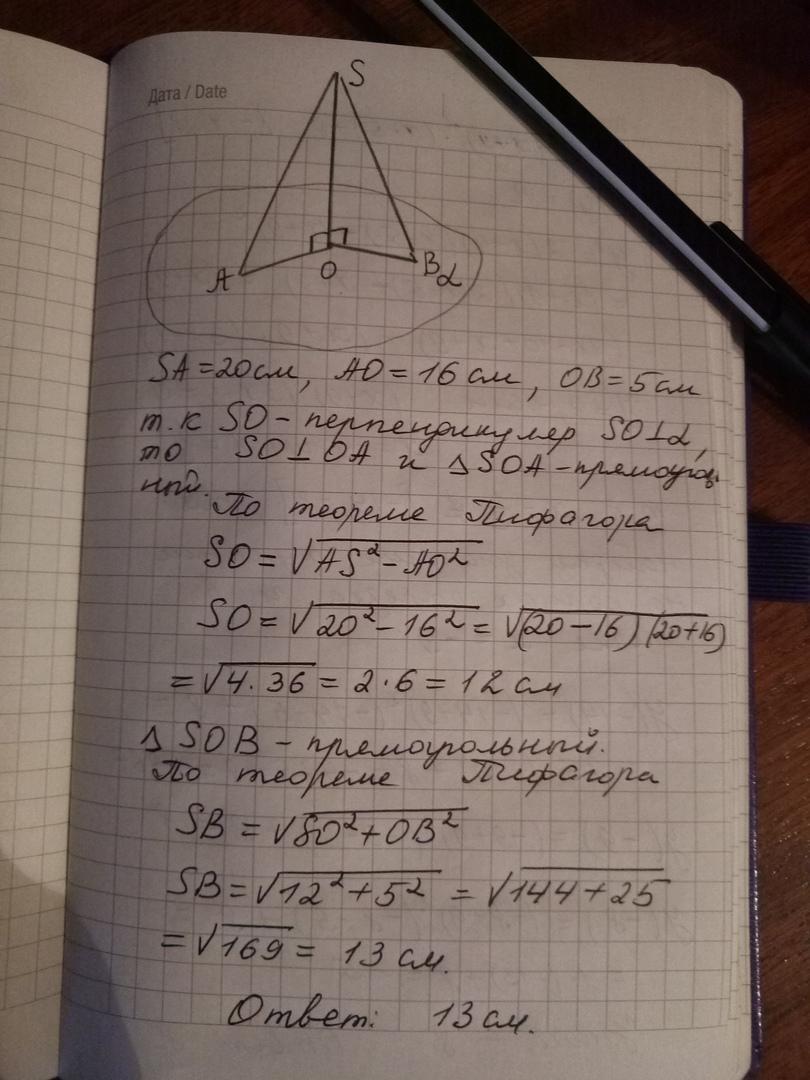 Дата / Date
S
A
O
B
α
SA = 20 см, AO = 16 см, OB = 5 см
т.к SO - перпендикуляр SO⊥α,
то SO⊥OA и △SOA - прямоуголь
ный.
По теореме Пифагора
SO = √(AS² - AO²)
SO = √(20² - 16²) = √((20 - 16)(20+16))
= √(4·36) = 2·6 = 12 см
△SOB - прямоугольный.
По теореме Пифагора
SB = √(SO² + OB²)
SB = √(12² + 5²) = √(144 + 25)
= √169 = 13 см.
Ответ: 13 см.